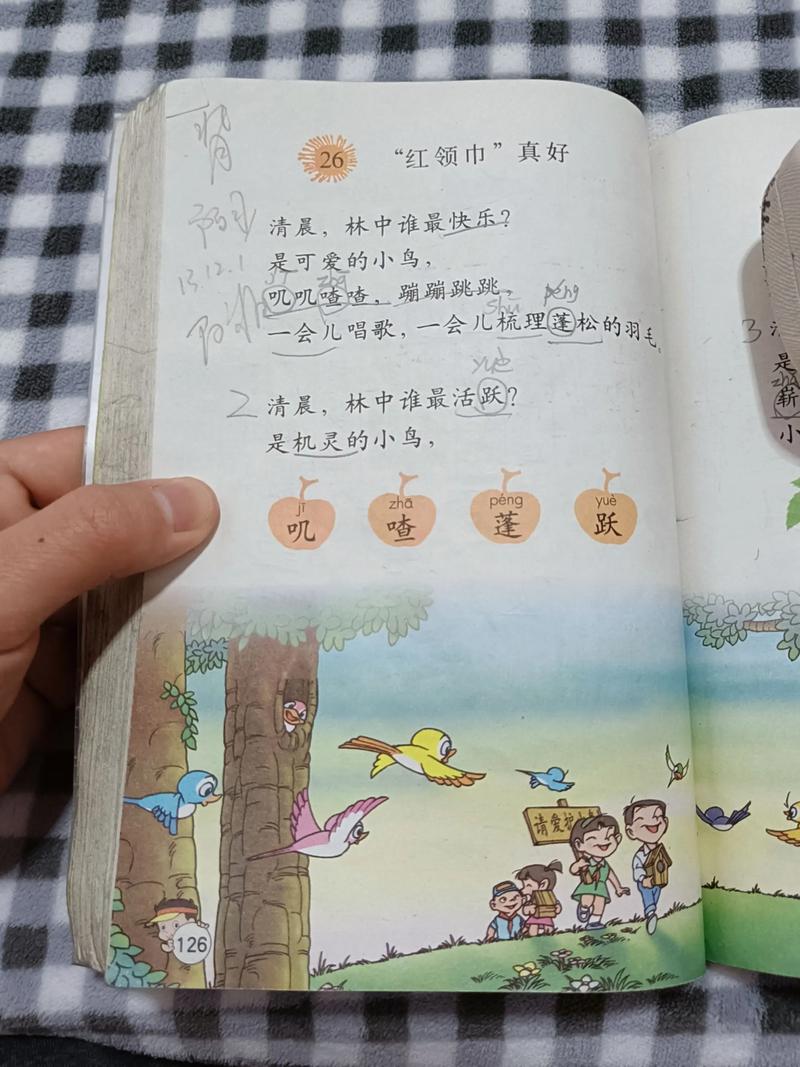 背
13.12.1
26 “红领巾”真好
清晨，林中谁最快乐？
是可爱的小鸟，
叽叽喳喳，蹦蹦跳跳，
shū péng
一会儿唱歌，一会儿梳理蓬松的羽毛。
2 清晨，林中谁最活跃？
是机灵的小鸟，
jī zhā péng yuè
叽 喳 蓬 跃
请爱护
126
3
是
崭
小